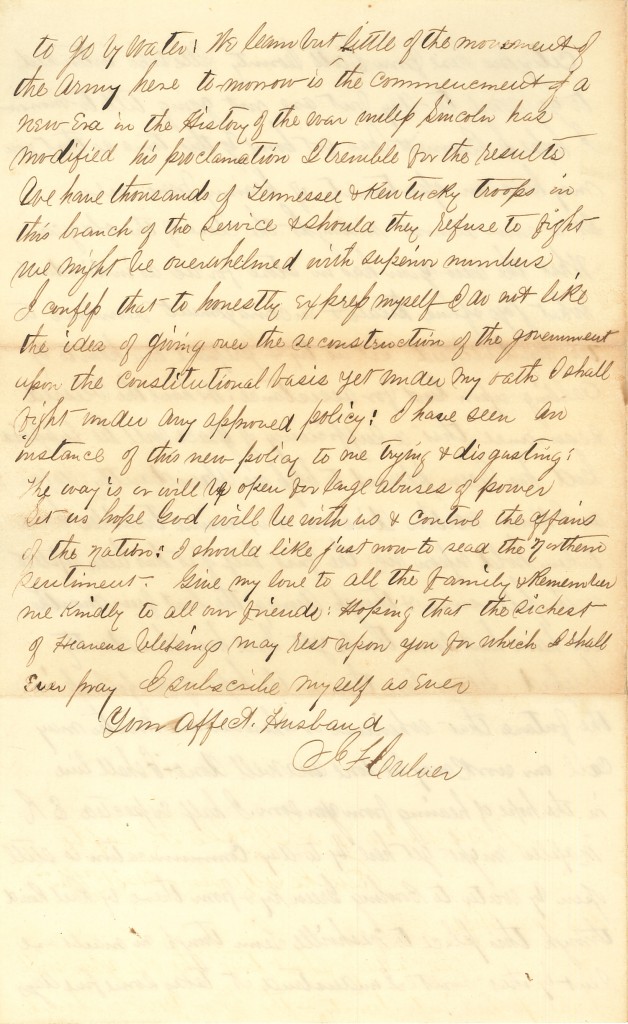 to go by water! We learn but little of the movement of
the Army here to-morrow is the commencment of a
new Era in the History of the war unless Lincoln has
modified his proclamation I tremble for the results
We have thousands of Tennessee & Kentucky troops in
this branch of the service & should they refuse to fight
we might be overwhelmed with superior numbers
I confess that to honestly express myself I do not like
the idea of giving over the reconstruction of the government
upon the constitutional basis yet under my oath I shall
fight under any approved policy! I have seen an
instance of this new policy to me trying & disgusting:
The way is or will be open for large abuses of power
Let us hope God will be with us & control the affairs
of the nation: I should like just now to read the Northern
sentiment. Give my love to all the family & Remember
me kindly to all our friends: Hoping that the richest
of Heavens blessings may rest upon you for which I shall
Ever pray I subscribe myself as Ever
Your Affect. Husband
J F Culver